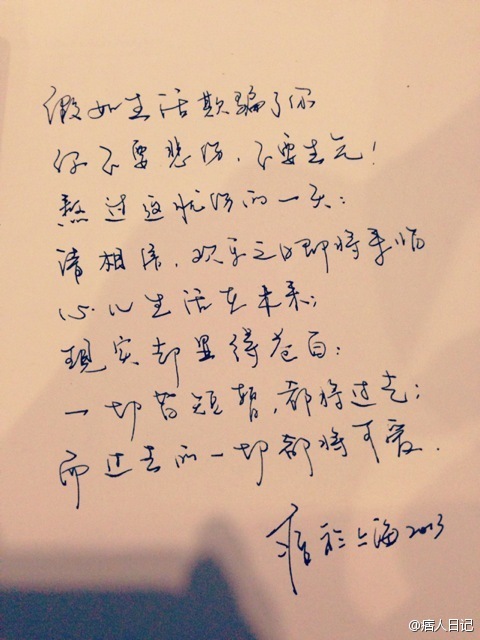 假如生活欺骗了你
你不要悲伤，不要生气！
熬过这忧伤的一天：
请相信，欢乐之日即将来临
心儿生活在未来；
现实却显得苍白：
一切皆短暂，都将过去；
而过去的一切都将可爱．
痞於上海2013
@痞人日记